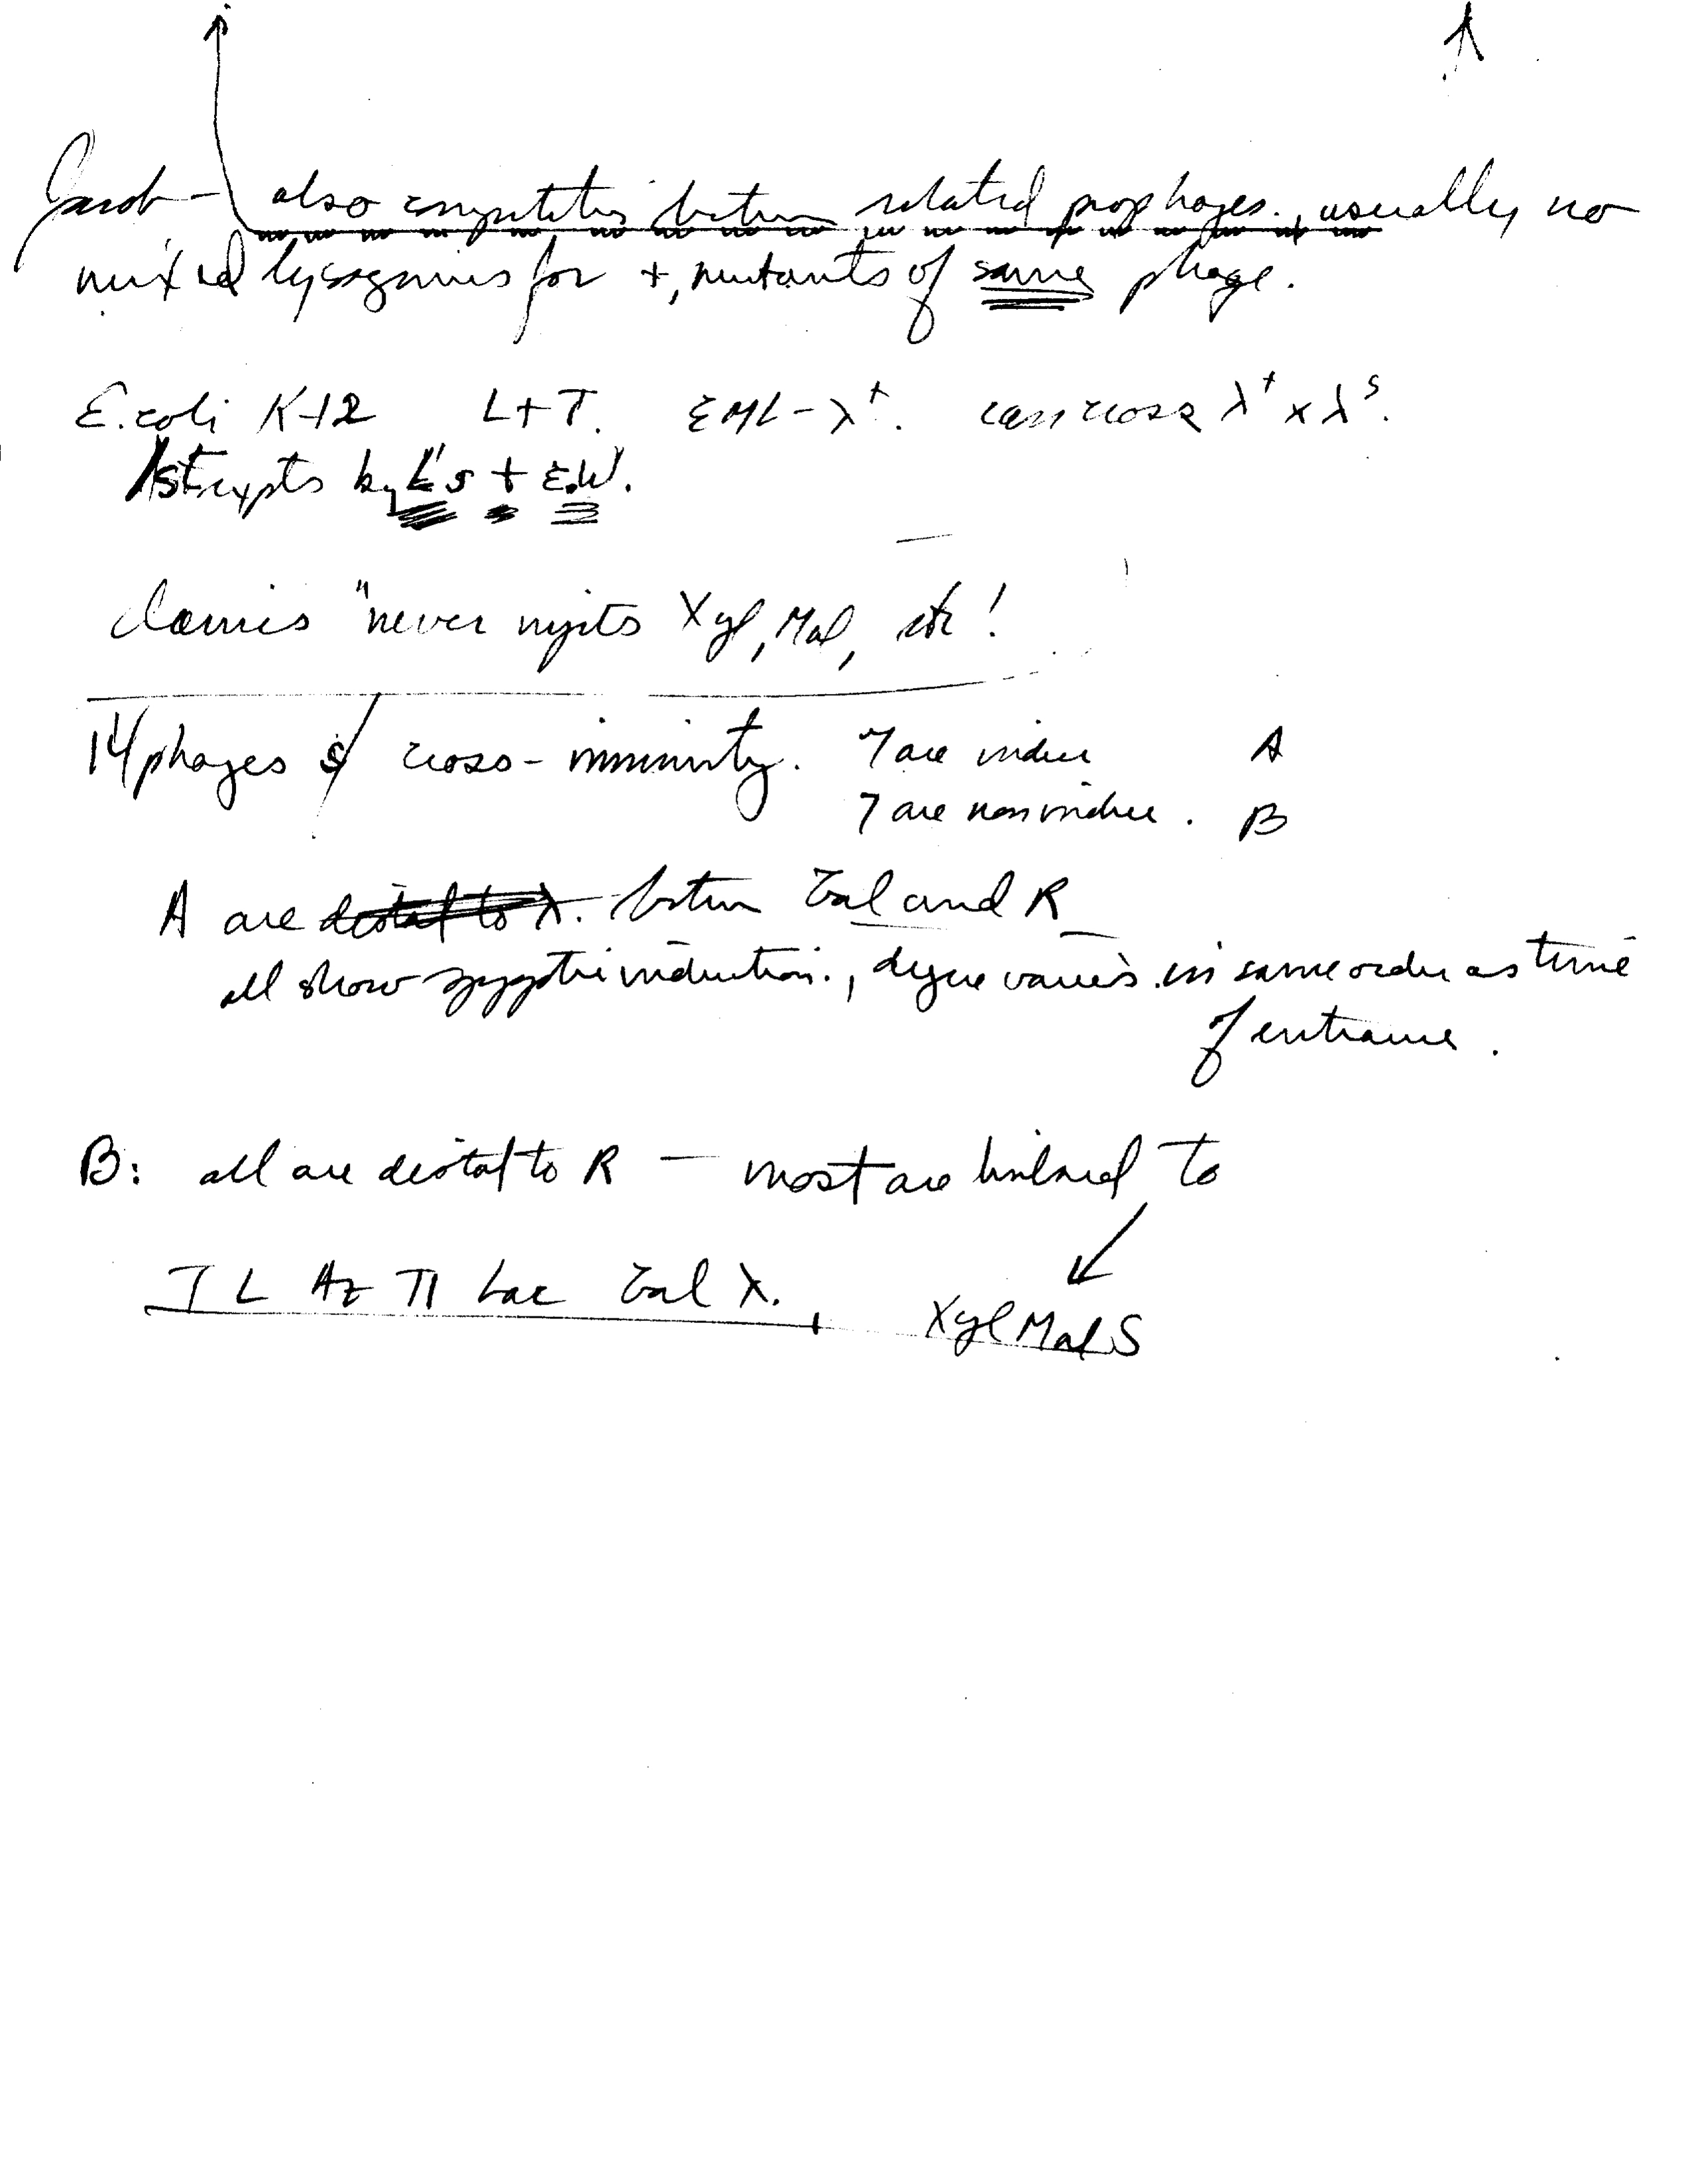 Jacob - also competition between related prophages., usually no
mixed lysogenics for +, mutants of same phage.
E. coli K-12 L+T. EML - λ⁺. can cross λ⁺ x λˢ.
1st expts by L's + E.W.
claims "never injects Xyl, Mal, etc!
14 phages s̸ cross-immunity. 7 are induc A
7 are noninduc. B
A are distal to λ. betwn Gal and R
all show zygotic induction., degree varies in same order as time
of entrance.
B: all are distal to R — most are linked to
T L Az T1 Lac Gal λ. Xyl Mal S